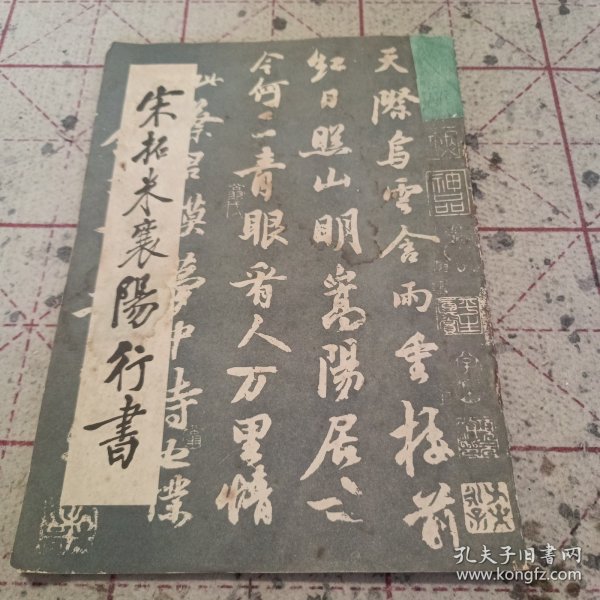 宋拓米襄陽行書
天際烏雲含雨重樓前
紅日照山明嵩陽居士
今何在青眼看人万里情
此蔡君謨夢中詩也僕
神品
孔夫子旧书网
www.kongfz.com